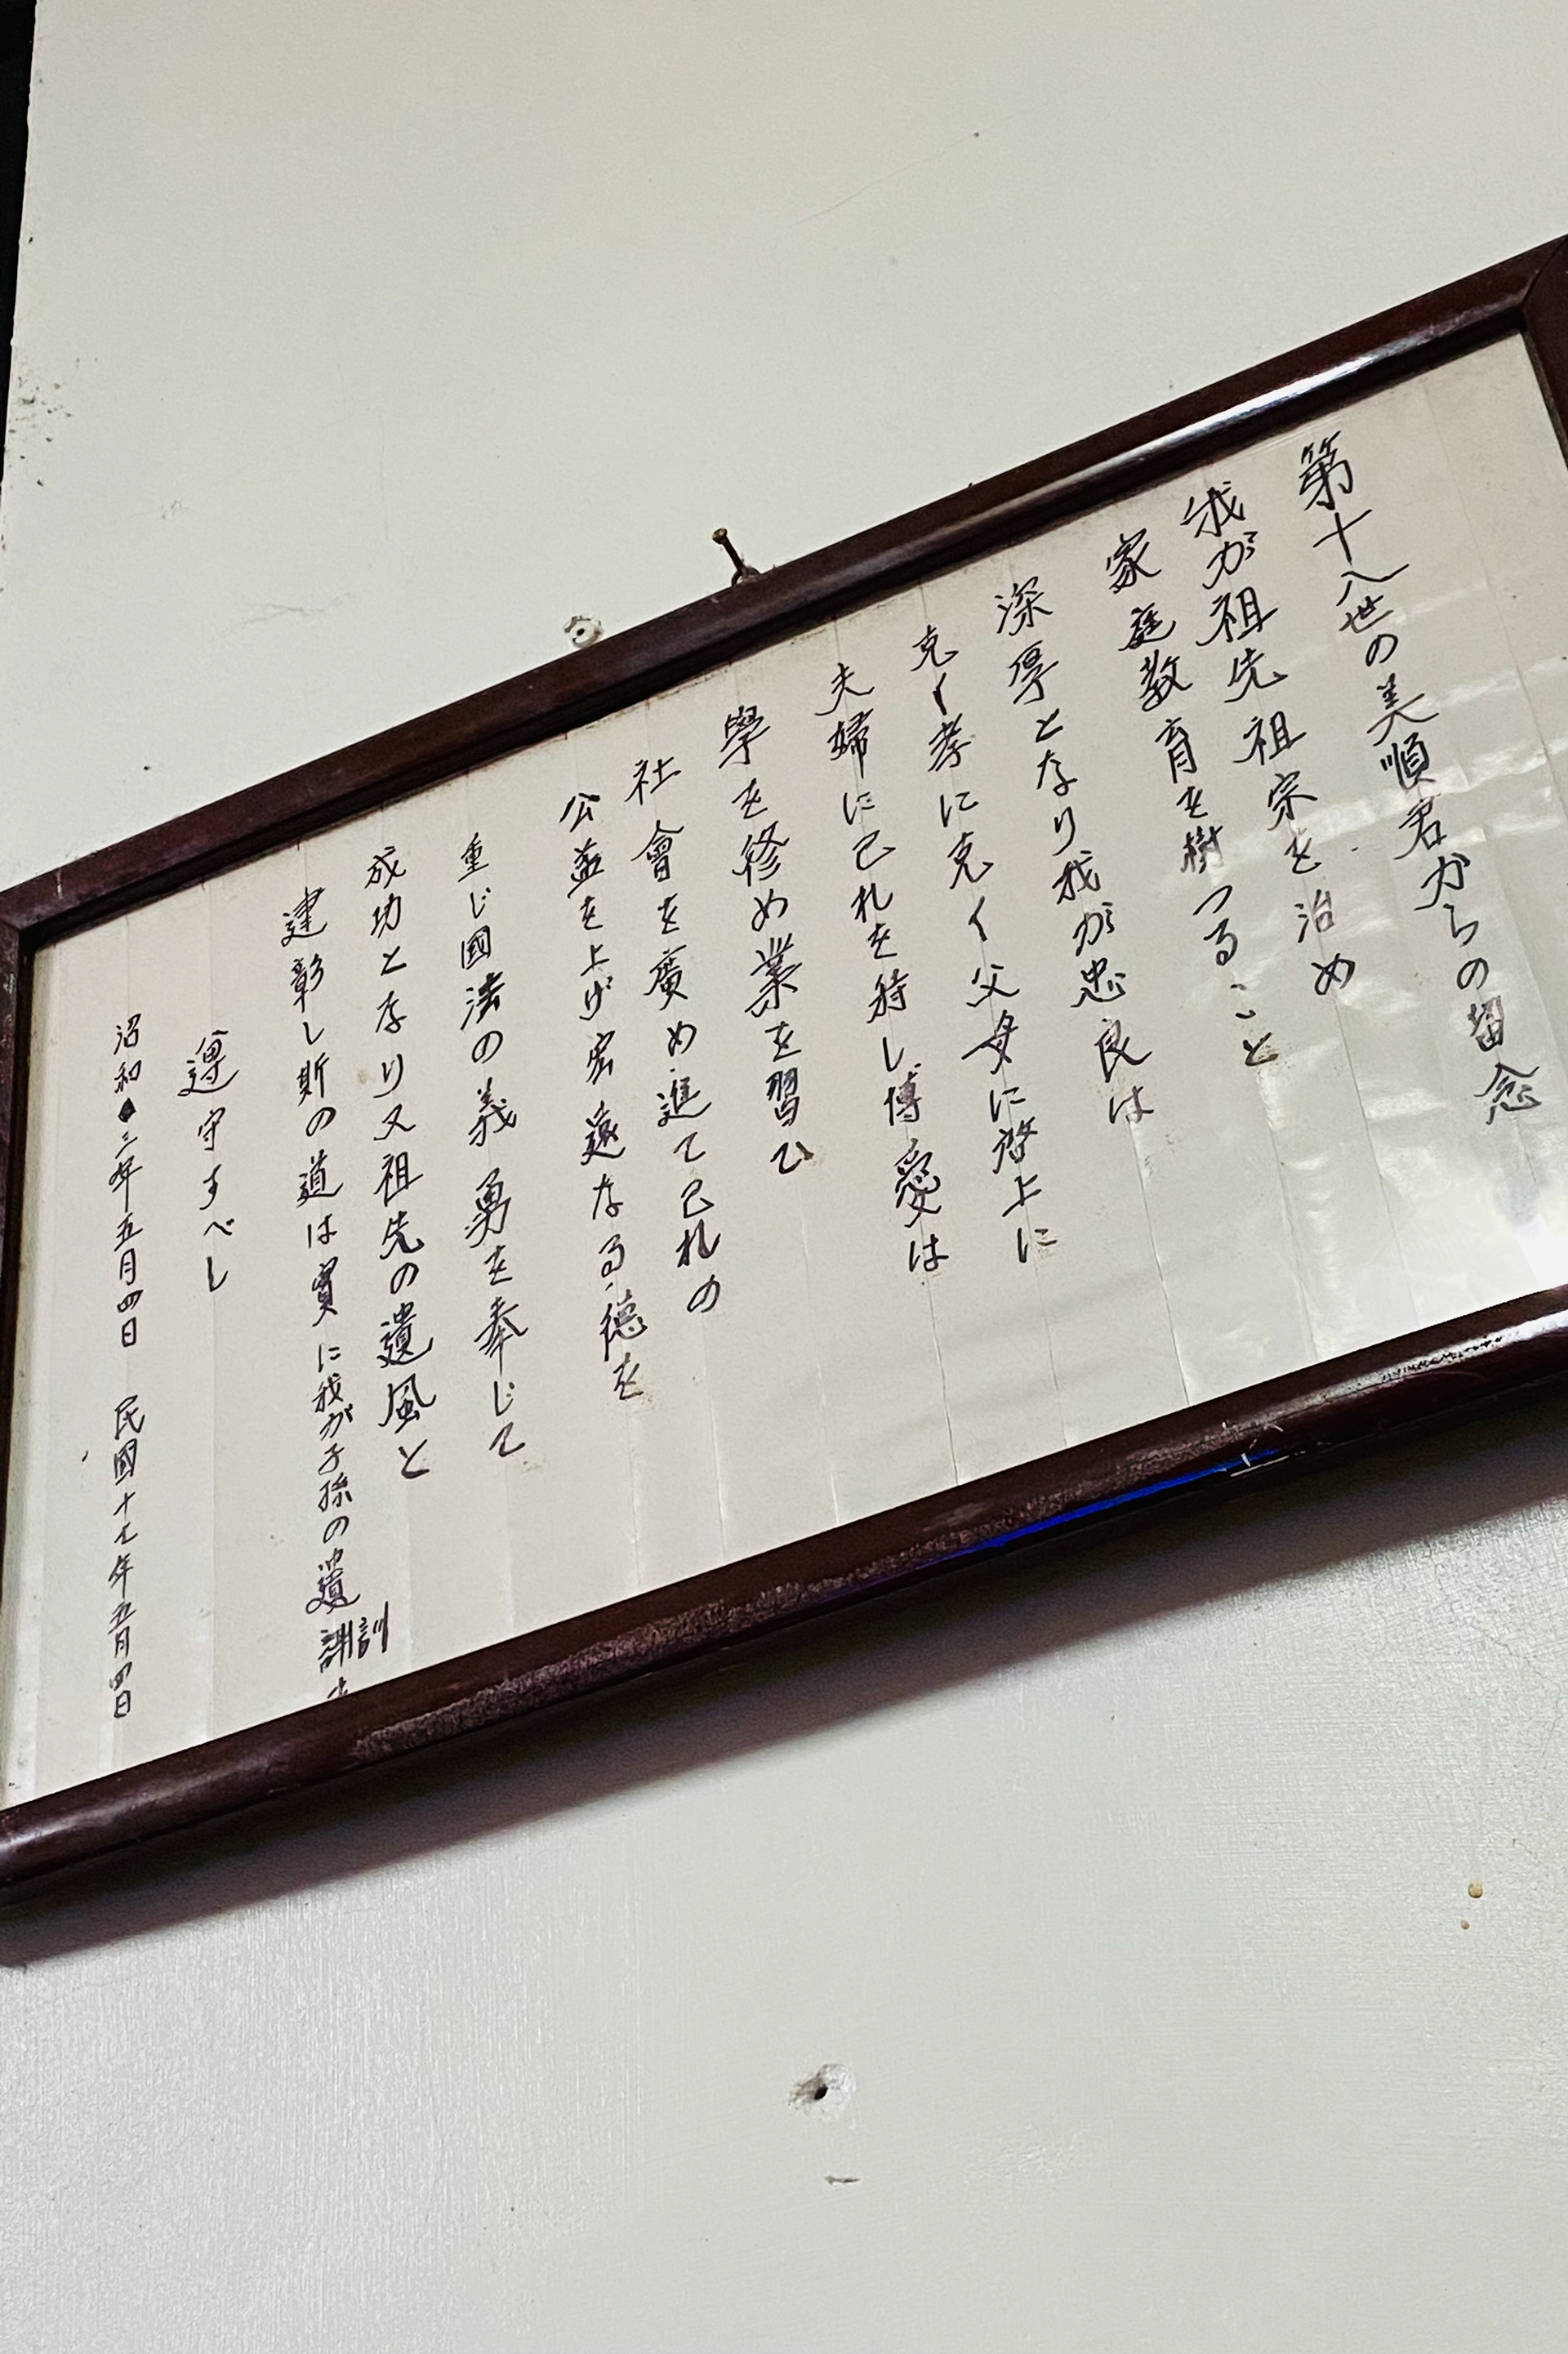 第十八世の美順君からの留念
我が祖先祖宗を治め
家庭教育を樹つること
深厚となり我が忠良は
克く孝に克く父母に啓上に
夫婦に己れを持し博愛は
學を修め業を習ひ
社會を廣め進て己れの
公益を上げ宏遠なる徳を
重じ國法の義勇を奉じて
成功となり又祖先の遺風と
建彰し斯の道は實に我が子孫の遺訓
遵守すべし
沼和三年五月四日 民國十七年五月四日